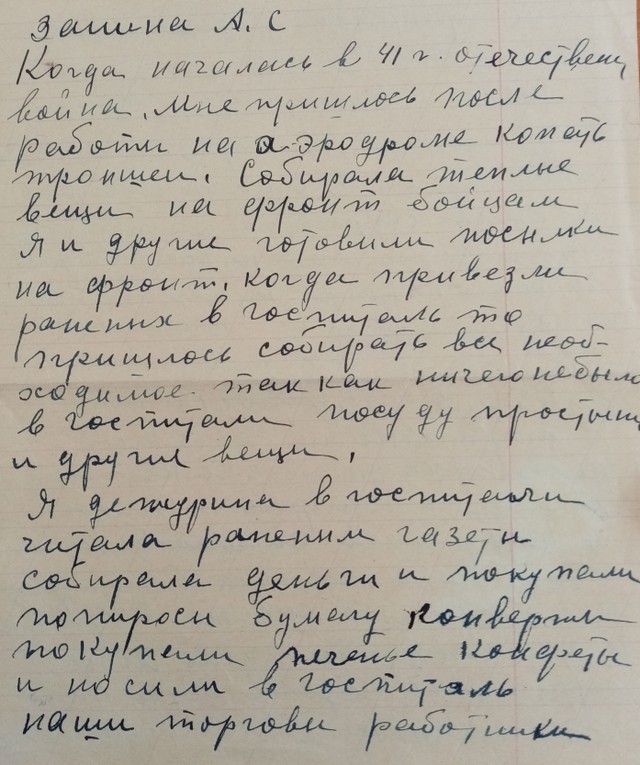 Зашина А. С
Когда началась в 41 г. отечествен
война. мне пришлось после
работы на аэродроме копать
траншеи. Собирала теплые
вещи на фронт бойцам
Я и другие готовили посылки
на фронт. когда привезли
раненых в госпиталь то
пришлось собирать все необ-
ходимое. так как ничего небыло
в госпитали посуду простыни
и другие вещи.
Я дежурила в госпитали
читала раненым газеты
собирала деньги и покупали
попиросы бумагу конверты
покупали печенье конфеты
и носили в госпиталь
наши торговы работники